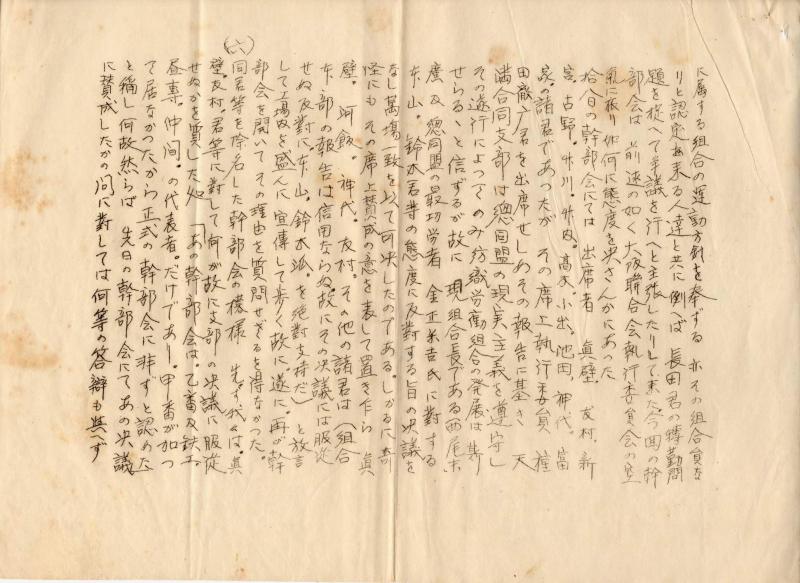 に属する組合の運動方針を奉ずる 亦その組合員な
りと認定出来る人達と共に 例へば 長田君の轉勤問
題を捉へて争議を行へと主張したりして来た今回の幹
部会は 前述の如く大阪聯合会執行委員会の空
氣に依り 如何に態度を決さんかにあった
拾八日の幹部会にては 出席者 眞壁、友村、新
宮、古野、竹川、竹内、高木、小出、池田、神代、富
家の諸君であったが その席上執行委員 権
田嚴户君を出席せしめその報告に基き 天
満合同支部は總同盟の現実主義を遵守し
その遂行によってのみ紡織労働組合の発展は期
せらるゝと信ずるが故に 現組合長である西尾末
廣及 總同盟の最功労者 金正米吉氏に對する
東山、鈴木君等の態度に反對する旨の決議を
なし萬場一致を以て可決したのである。しかるに奇
怪にも その席上賛成の意を表して置き乍ら 眞
壁、河飯、神代、友村、その他の諸君は（組合
本部の報告は信用ならぬ故にその決議には服従
せぬ 反對に東山、鈴木派を絶對支持だ）と放言
して工場内を盛んに宣傳して歩く故に遂に、再び幹
部会を開いてその理由を質問せざるを得なかった。
同君等を除名した幹部会の模様 先ず我々は、眞
壁、友村君等に對して何が故に支部の決議に服従
せぬかを質した処 「あの幹部会は、乙番及鉄工、
昼専、仲間、の代表者、だけであり、甲番が加っ
て居なかったから正式の幹部会に非ずと認めた
と稱し何故然らば 先日の幹部会にてあの決議
に賛成したかの問に對しては何等の答辯も與へず
（六）